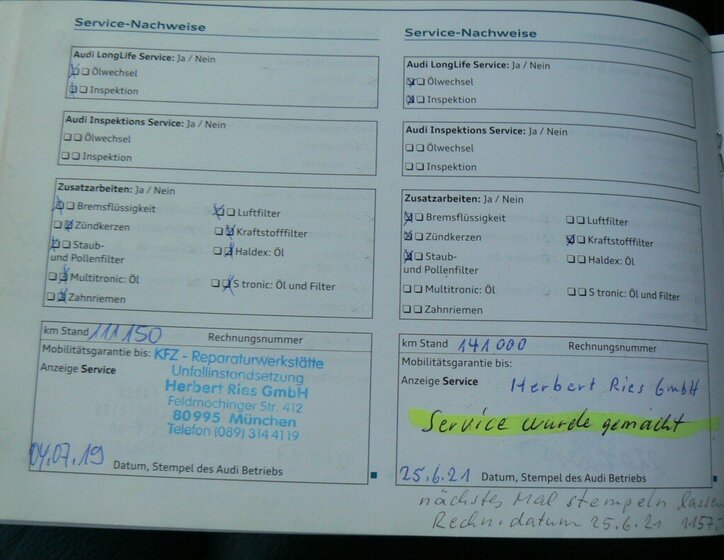 Service-Nachweise
Audi LongLife Service: Ja / Nein
Ölwechsel
Inspektion
Audi Inspektions Service: Ja / Nein
Ölwechsel
Inspektion
Zusatzarbeiten: Ja / Nein
Bremsflüssigkeit Luftfilter
Zündkerzen Kraftstofffilter
Staub- Haldex: Öl
und Pollenfilter
Multitronic: Öl S tronic: Öl und Filter
Zahnriemen
km Stand 111150 Rechnungsnummer
Mobilitätsgarantie bis: KFZ - Reparaturwerkstätte
Unfallinstandsetzung
Anzeige Service
Herbert Ries GmbH
Feldmochinger Str. 412
80995 München
Telefon (089) 314 41 19
04.07.19 Datum, Stempel des Audi Betriebs
Service-Nachweise
Audi LongLife Service: Ja / Nein
Ölwechsel
Inspektion
Audi Inspektions Service: Ja / Nein
Ölwechsel
Inspektion
Zusatzarbeiten: Ja / Nein
Bremsflüssigkeit Luftfilter
Zündkerzen Kraftstofffilter
Staub- Haldex: Öl
und Pollenfilter
Multitronic: Öl S tronic: Öl und Filter
Zahnriemen
km Stand 141000 Rechnungsnummer
Mobilitätsgarantie bis:
Anzeige Service Herbert Ries GmbH
Service wurde gemacht
25.6.21 Datum, Stempel des Audi Betriebs
nächstes Mal stempeln lassen
Rechn.datum 25.6.21